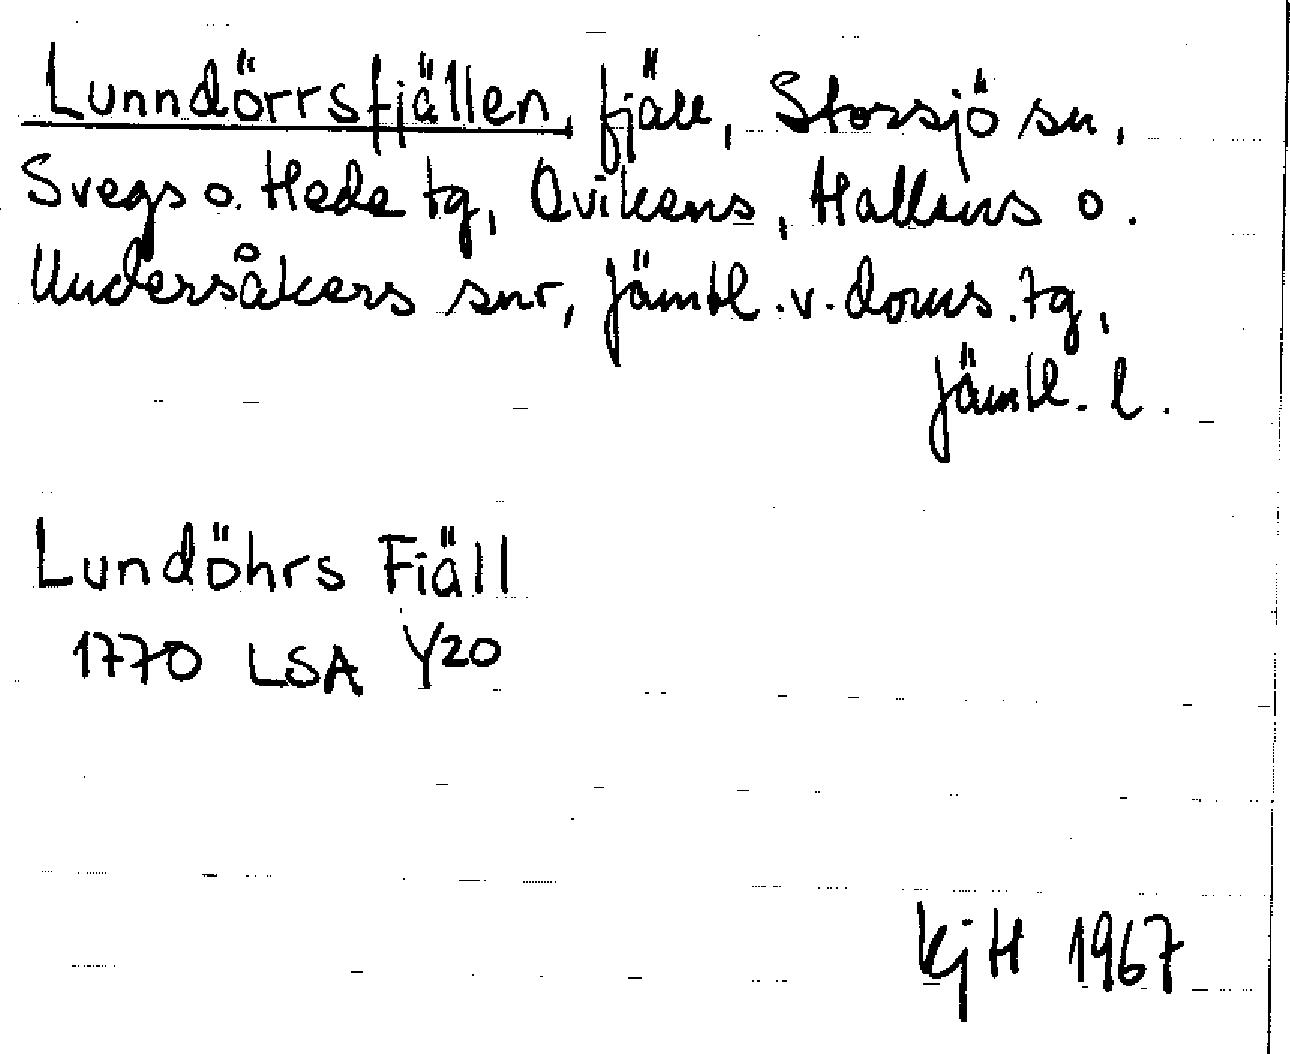 Lunndörrsfjällen, fjäll, Storsjö sn,
Svegs o. Hede tg, Ovikens, Hallens o.
Undersåkers snr, Jämtl.v.doms.tg,
Jämtl. l.
Lundöhrs Fiäll
1770 LSA Y20
KjH 1967